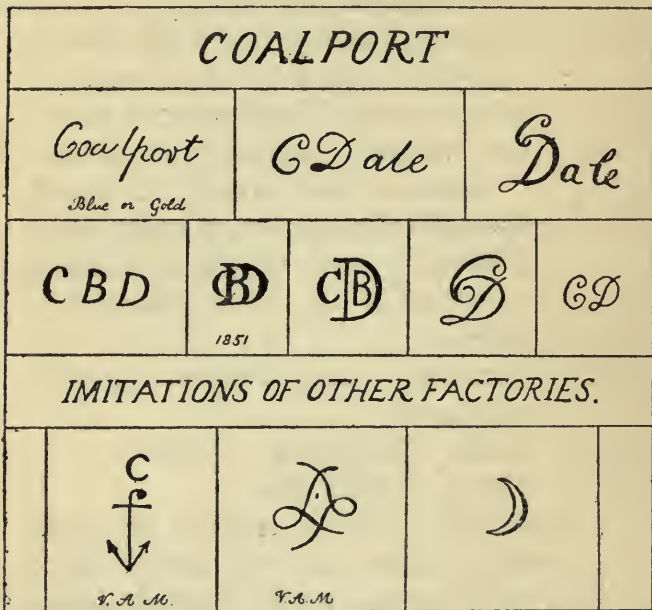 COALPORT
Coalport
Blue or Gold
CDale
CDale
CBD
CBD
1851
CBD
CD
CD
IMITATIONS OF OTHER FACTORIES.
C
V. A. M.
V.A.M